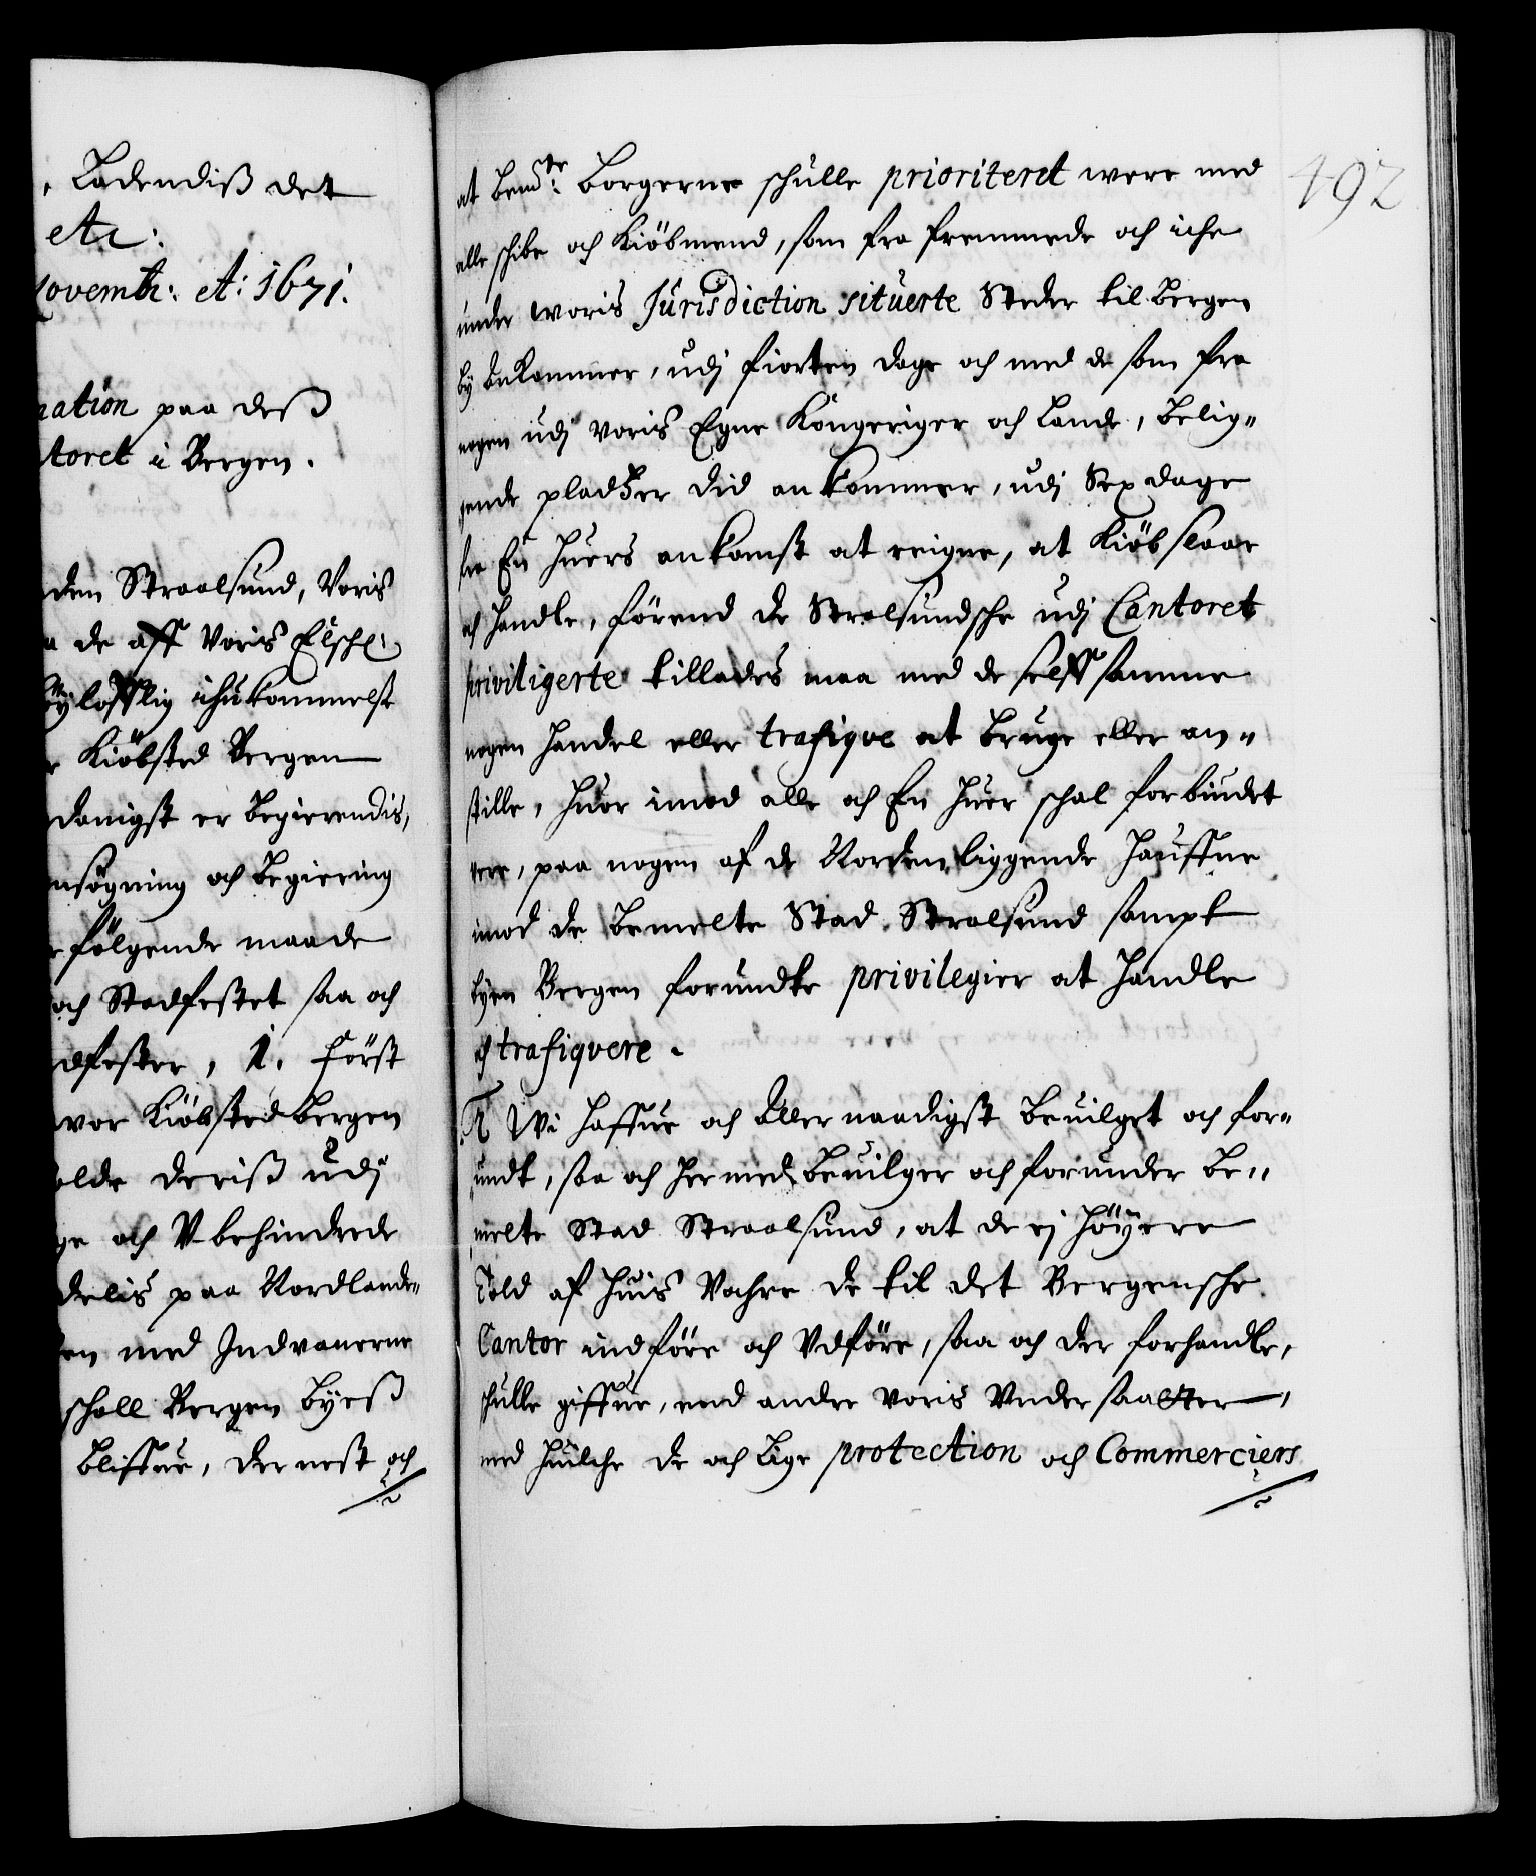 Ladendiß det
etc:
Novembr: A: 1671.
nation paa deß
toret i Bergen.
den Straalsund, Voris
de aff Voris Elschl:
lofflig ihukommelse
Kiöbsted Bergen
danigst er begierendis,
nsögning och begiering
fölgende maade
och Stadfestet saa och
dfester, 1. Först
vor Kiöbsted bergen
olde deriß udj
ge och Vbehindrede
delis paa Nordlande,,
en med Indvanerne
schall Bergen byeß
bliffue, der nest och
492
at bemte: borgerne schulle prioriteret were med
alle schibe och Kiöbmend, som fra fremmede och iche
under woris Jurisdiction situerte Steder til bergen
by ankommer, udj fiorten dage och med de som fra
nogen udj voris Egne Kongeriger och Lande, belig,,
gende pladtzer did ankommer, udj Sex dage
fra En huers ankomst at reigne, at Kiöbslaae
och handle, förend de Stralsundsche udj Cantoret
priviligerte tillades maa med de selff samme
nogen handel eller trafique at bruge eller an,,
stille, huor imod alle och En huer schal forbindet
were, paa nogen af de Norden liggende hauffne
imod de bemelte Stad Stralsund sampt
byen Bergen forundte privilegier at handle
och trafiqvere.
2. Wi haffue och Allernaadigst beuilget och for,,
undt, saa och hermed beuilger och forunder be,,
melte Stad Straalsund, at de ej höyere
Told af huis Vahre de til det Bergensche
Cantor indföre och Vdföre, saa och der forhandle,
schulle giffue, end andre voris Undersaatter,
med huilche de och lige protection och Commerciers